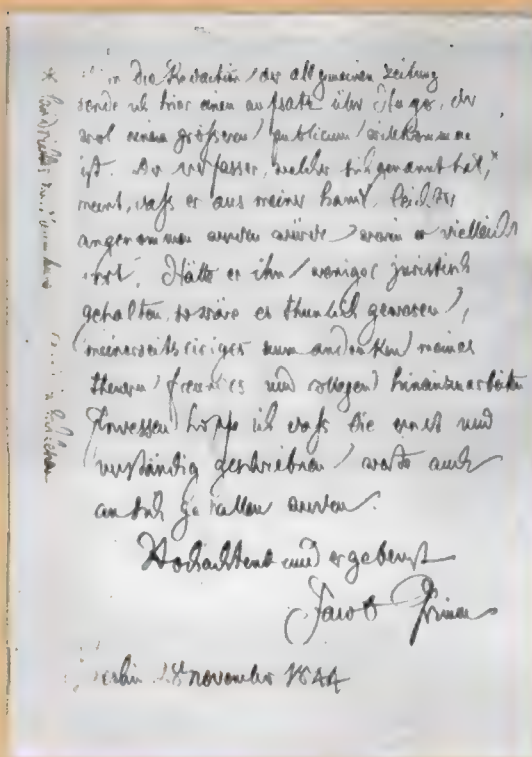 An die Redaction der allgemeinen Zeitung
sende ich hier einen aufsatz über Hugo, der
wol einem größeren publicum willkommen
ist. Der verfasser, welcher sich genannt hat,*
meint, dass er aus meiner hand leichter
angenommen werden würde, worin er vielleicht
irrt. Hätte er ihn weniger juristisch
gehalten, so wäre es thunlich gewesen,
meinerseits einiges zum andenken meines
theuern freundes und collegen hineinzuarbeiten
Indessen hoffe ich dass die ernst und
verständig geschriebnen worte auch
an sich gefallen werden.
Hochachtend und ergebenst
Jacob Grimm
Berlin 28 november 1844
*